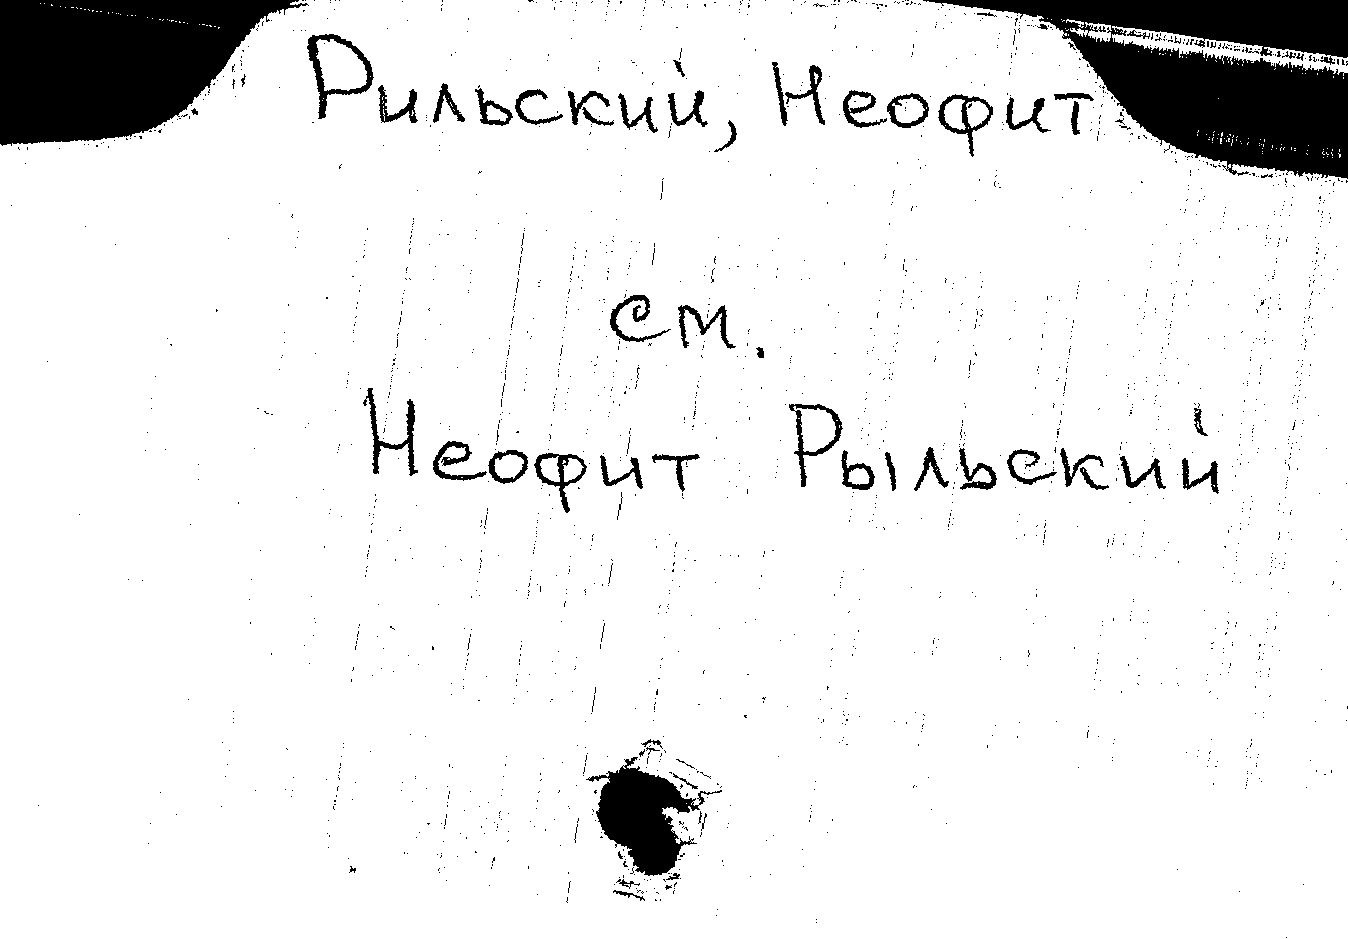 Рильский, Неофит
см.
Неофит Рыльский